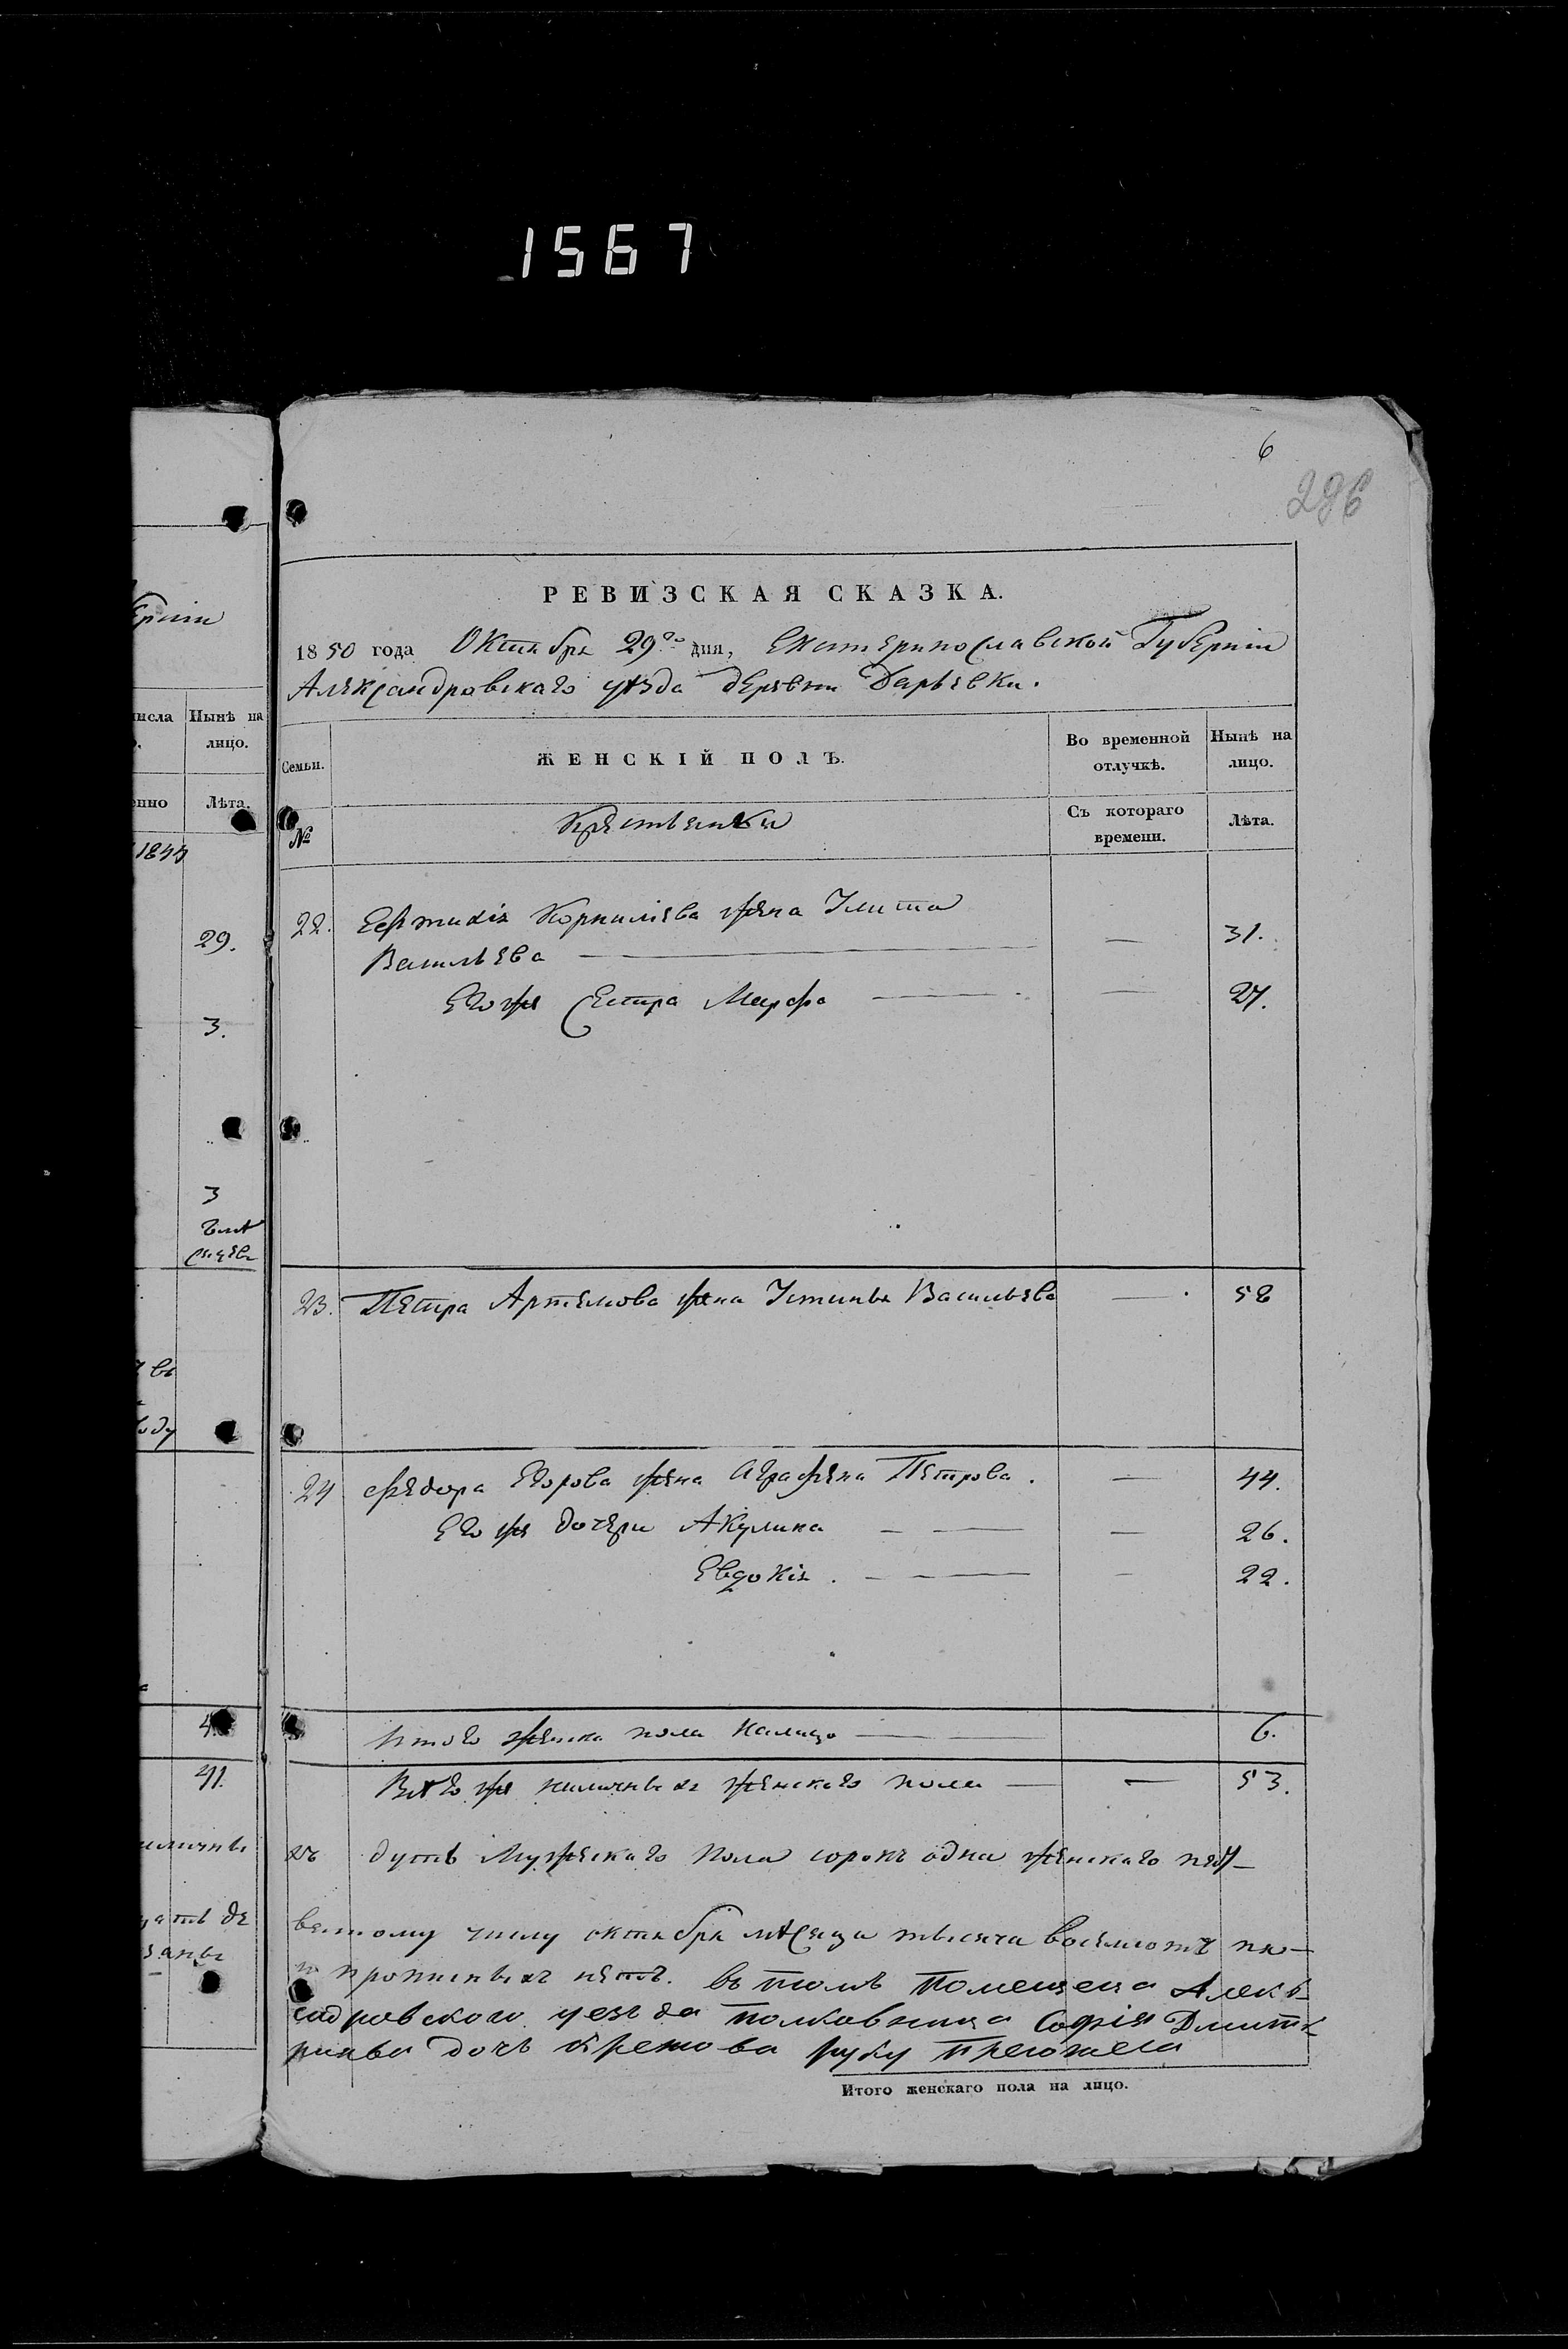 1567
6
296
РЕВИЗСКАЯ СКАЗКА.
1850 года Октября 29го дня, Екатеринославской Губерніи
Александровскаго уѣзда деревни Дарьевки.
Семьи.
ЖЕНСКІЙ ПОЛЪ.
Во временной отлучкѣ.
Нынѣ на лицо.
№
Крестьянки
Съ котораго времени.
Лѣта.
22. Корнилѣева жена Улита
Васильева — 31.
Его же Сестра Марфа — 27.
23. Петра Артемова жена Устинья Васильева — 58
24 Федора Егорова жена Аграфена Петрова. — 44.
Его же дочери Акулина — 26.
Евдокія. — 22.
Итого женска пола налицо — 6.
Всѣго же наличныхъ женскаго пола — 53.
хъ душъ Мужескаго пола сорокъ одна женскаго пять-
вятому числу октября мѣсяца тысяча восемсотъ пя-
и прописныхъ нѣтъ. въ томъ Помещеца Алекъ-
сндровского уезъда полковница Софія Дмитъ-
ринва дочь рубу преложела
Итого женскаго пола на лицо.
ерніи
исла
Нынѣ на
лицо.
енно
Лѣта.
1844
29.
3.
3
въ
оду
41.
аличны
цать де
заны